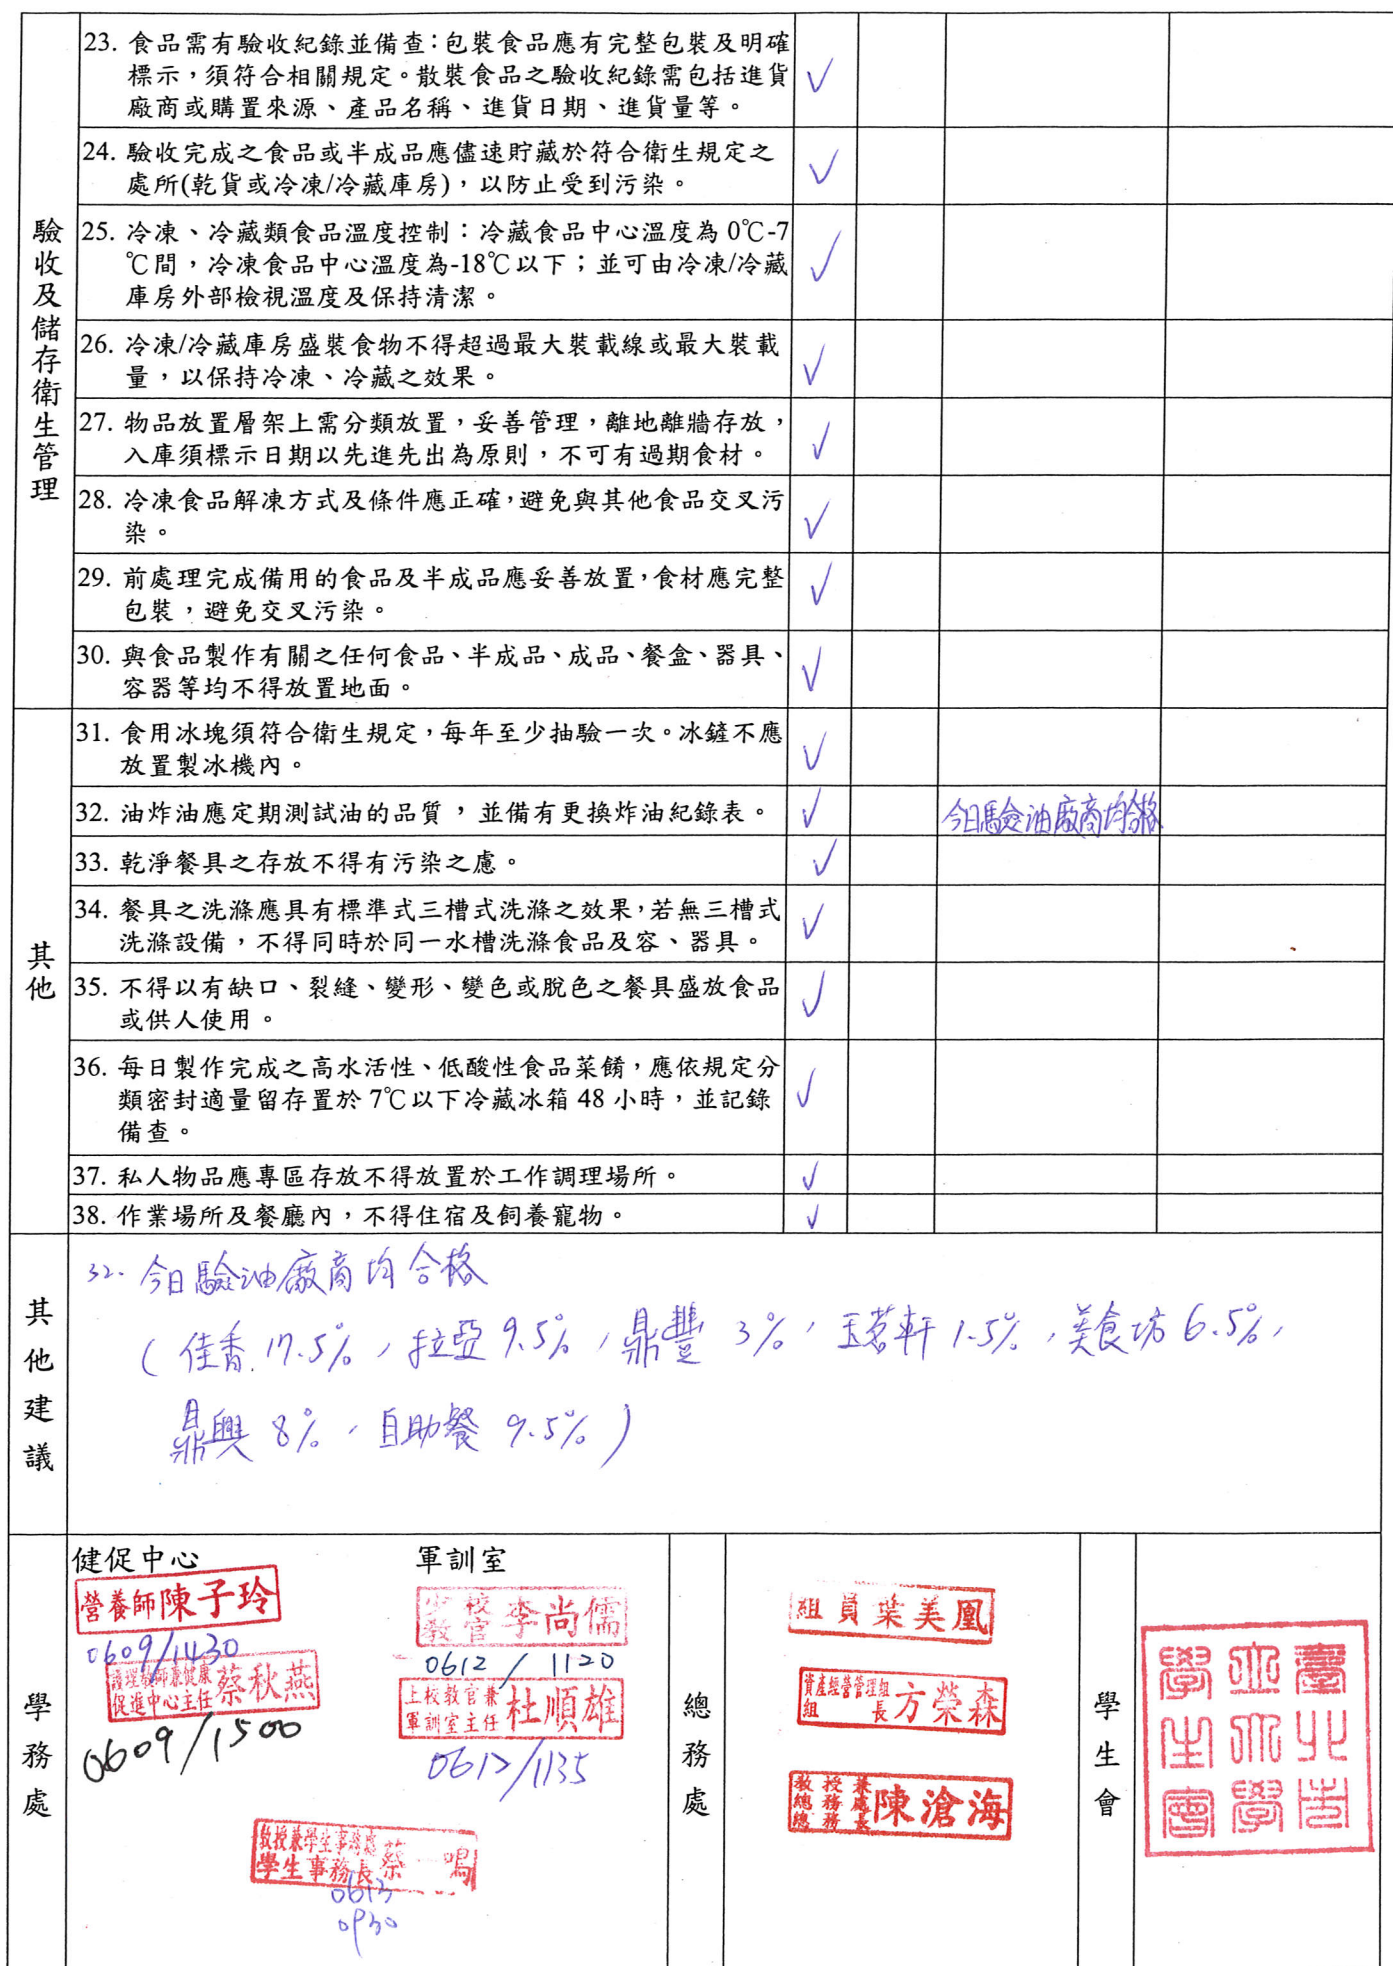 驗收及儲存衛生管理
23. 食品需有驗收紀錄並備查：包裝食品應有完整包裝及明確
標示，須符合相關規定。散裝食品之驗收紀錄需包括進貨
廠商或購置來源、產品名稱、進貨日期、進貨量等。
✓
24. 驗收完成之食品或半成品應儘速貯藏於符合衛生規定之
處所(乾貨或冷凍/冷藏庫房)，以防止受到污染。
✓
25. 冷凍、冷藏類食品溫度控制：冷藏食品中心溫度為 0℃-7
℃間，冷凍食品中心溫度為-18℃以下；並可由冷凍/冷藏
庫房外部檢視溫度及保持清潔。
✓
26. 冷凍/冷藏庫房盛裝食物不得超過最大裝載線或最大裝載
量，以保持冷凍、冷藏之效果。
✓
27. 物品放置層架上需分類放置，妥善管理，離地離牆存放，
入庫須標示日期以先進先出為原則，不可有過期食材。
✓
28. 冷凍食品解凍方式及條件應正確，避免與其他食品交叉污
染。
✓
29. 前處理完成備用的食品及半成品應妥善放置，食材應完整
包裝，避免交叉污染。
✓
30. 與食品製作有關之任何食品、半成品、成品、餐盒、器具、
容器等均不得放置地面。
✓
其他
31. 食用冰塊須符合衛生規定，每年至少抽驗一次。冰鏟不應
放置製冰機內。
✓
32. 油炸油應定期測試油的品質，並備有更換炸油紀錄表。
✓
今日驗油廠商均合格
33. 乾淨餐具之存放不得有污染之慮。
✓
34. 餐具之洗滌應具有標準式三槽式洗滌之效果，若無三槽式
洗滌設備，不得同時於同一水槽洗滌食品及容、器具。
✓
35. 不得以有缺口、裂縫、變形、變色或脫色之餐具盛放食品
或供人使用。
✓
36. 每日製作完成之高水活性、低酸性食品菜餚，應依規定分
類密封適量留存置於 7℃以下冷藏冰箱 48 小時，並記錄
備查。
✓
37. 私人物品應專區存放不得放置於工作調理場所。
✓
38. 作業場所及餐廳內，不得住宿及飼養寵物。
✓
其他建議
32. 今日驗油廠商均合格
(佳香 17.5%，拉亞 9.5%，鼎豐 3%，玉茗軒 1.5%，美食坊 6.5%，
鼎興 8%，自助餐 9.5%)
學務處
健促中心
營養師陳子玲
0609/1430
護理教師兼健康
促進中心主任蔡秋燕
0609/1500
軍訓室
少校教官李尚儒
0612/1120
上校教官兼
軍訓室主任杜順雄
0612/1135
教授兼學生事務處
學生事務長蔡一鳴
0613
0930
總務處
組員葉美凰
資產經營管理組
組長方榮森
教授兼總務處
總務長陳滄海
學生會
臺北市
立大學
學生會